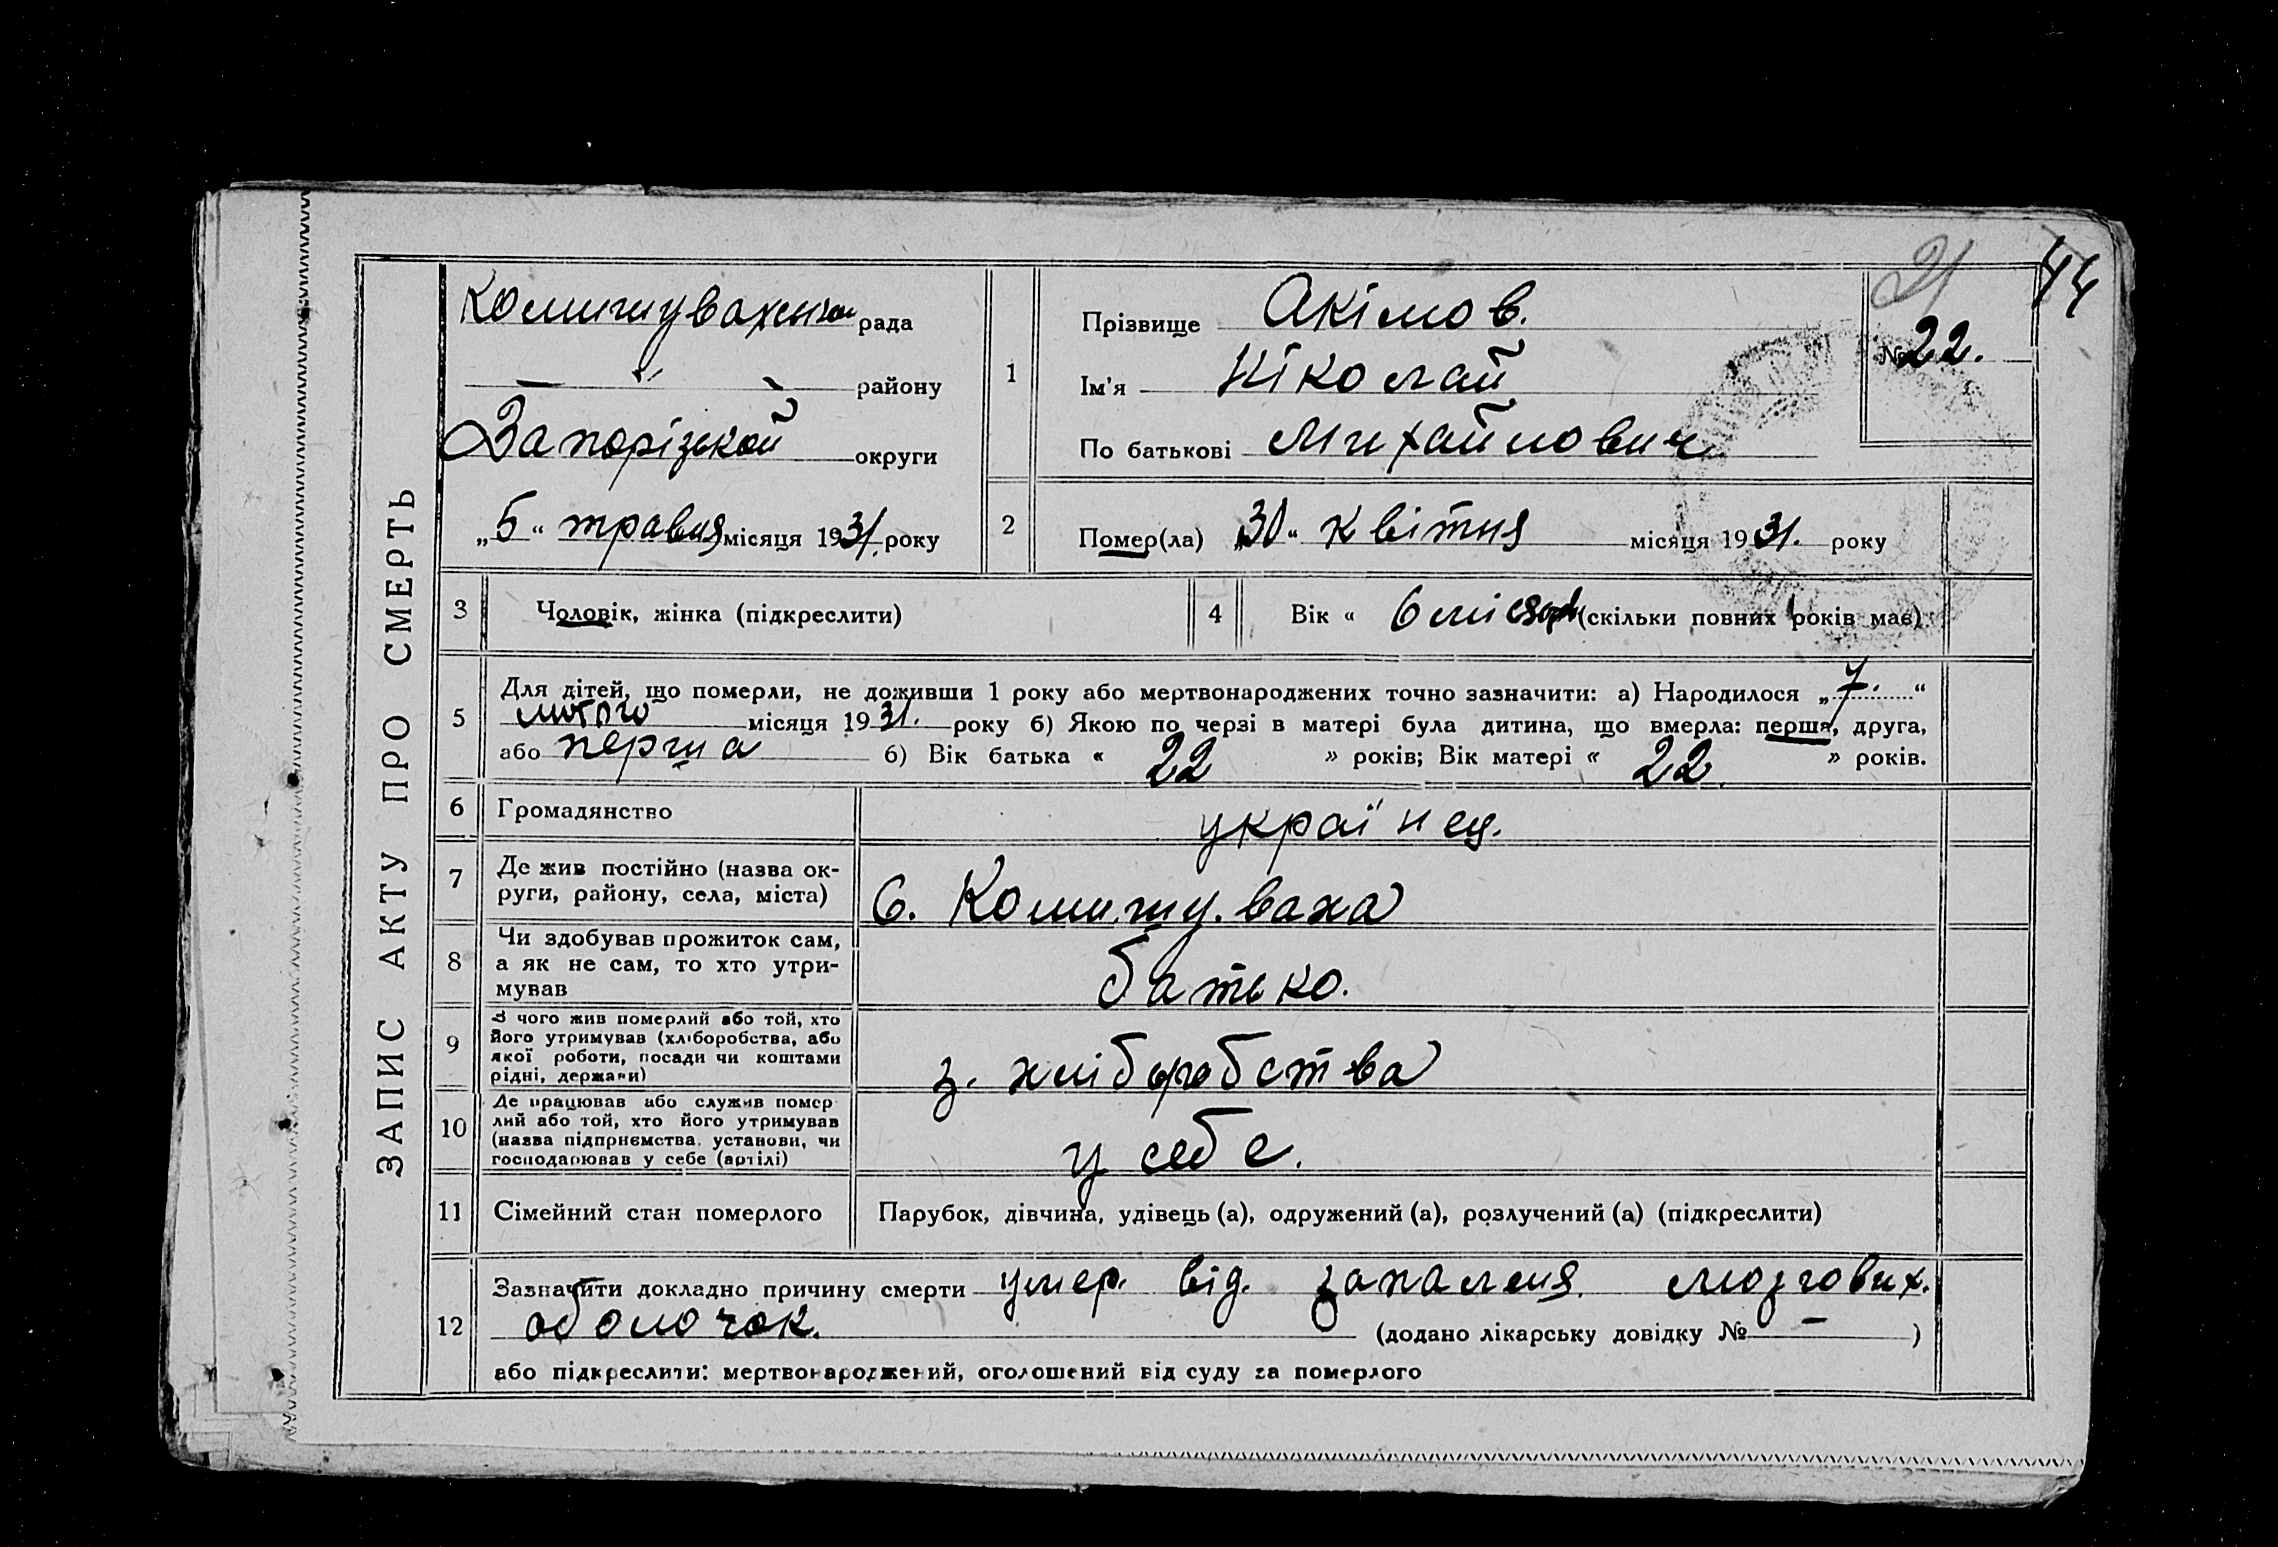 ЗАПИС АКТУ ПРО СМЕРТЬ
21
44
Комишуваська рада
— " — району
Запорізькой округи
„5“ травня місяця 1931. року
1
Прізвище Акімов.
Ім'я Ніколай
По батькові Михайлович
№ 22.
2
Помер(ла) „30“ квітня місяця 1931. року
3 Чоловік, жінка (підкреслити)
4 Вік « 6 місяц (скільки повних років має)
5 Для дітей, що померли, не доживши 1 року або мертвонароджених точно зазначити: а) Народилося „7.“
лютого місяця 1931. року б) Якою по черзі в матері була дитина, що вмерла: перша, друга,
або перша б) Вік батька « 22 » років; Вік матері « 22 » років.
6 Громадянство українец.
7 Де жив постійно (назва ок-
руги, району, села, міста) С. Комишуваха
8 Чи здобував прожиток сам,
а як не сам, то хто утри-
мував батько.
9 З чого жив померлий або той, хто
його утримував (хліборобства, або
якої роботи, посади чи коштами
рідні, держави) з. хліборобства
10 Де працював або служив помер
лий або той, хто його утримував
(назва підприємства, установи, чи
господарював у себе (артілі) у себе.
11 Сімейний стан померлого Парубок, дівчина, удівець (а), одружений (а), розлучений (а) (підкреслити)
12 Зазначити докладно причину смерти умер. від. запаленя. мозгових.
оболочок. (додано лікарську довідку № — )
або підкреслити: мертвонароджений, оголошений від суду за померлого